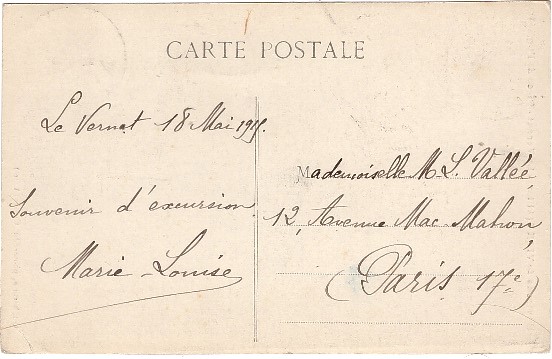 CARTE POSTALE
Le Vernet 18 Mai
Souvenir d'excursion.
Marie-Louise
Mademoiselle M. L. Vallée,
12, Avenue Mac-Mahon,
(Paris 17e)